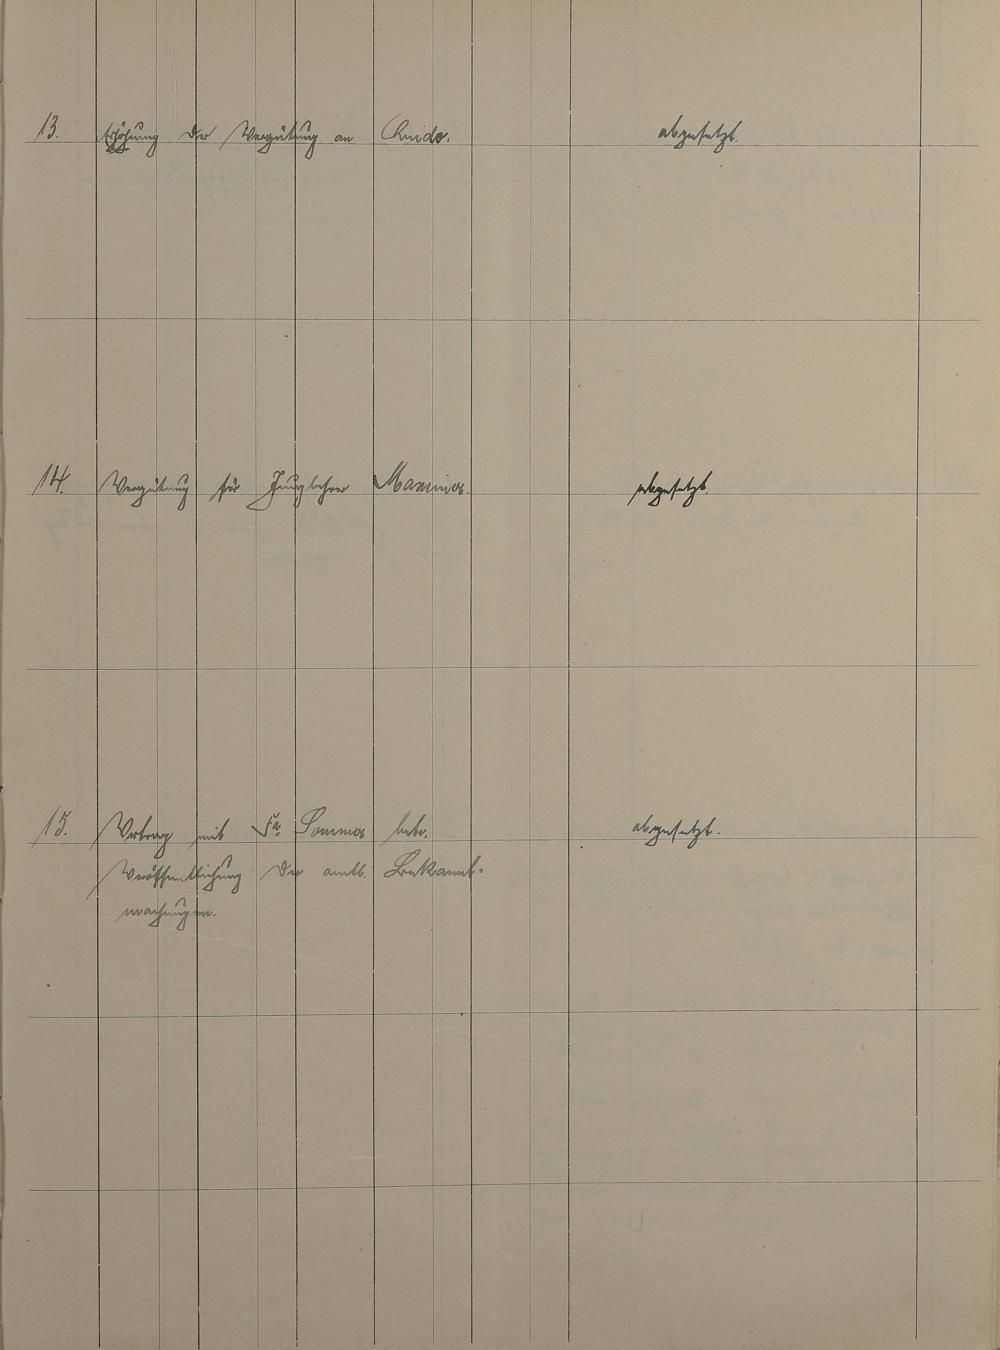 13. Erhöhung der Vergütung an Cnido. abgesetzt.
14. Vergütung für Junglehrer abgesetzt.
15. Vertrag mit Fa. Sommer betr. abgesetzt.
Veröffentlichung der amtl. Bekannt-
machungen.